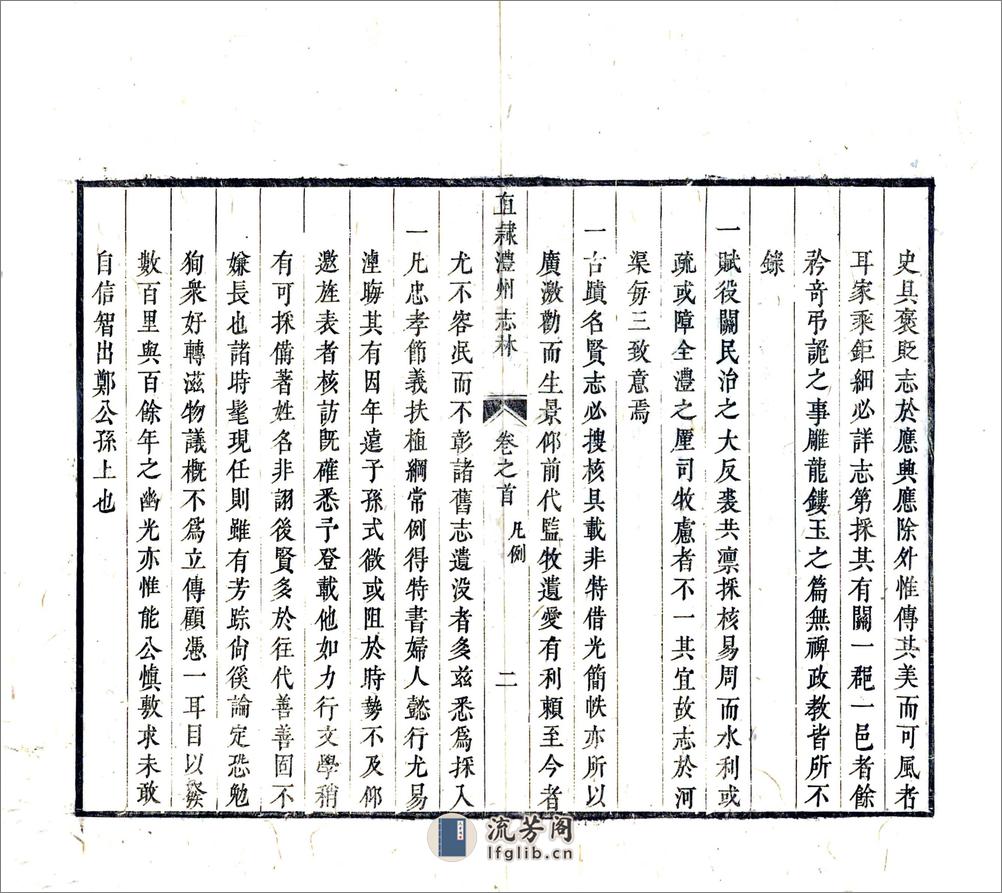 史具褒貶志於應典應除外惟傳其美而可風者
耳家乘鉅細必詳志第採其有關一郡一邑者餘
矜奇弔詭之事雕龍鏤玉之篇無裨政教皆所不
錄
一賦役關民治之大反裘共凛採核易周而水利或
疏或障全澧之厘司牧慮者不一其宜故志於河
渠每三致意焉
一古蹟名賢志必搜核具載非特借光簡帙亦所以
廣激勸而生景仰前代監牧遺愛有利賴至今者
直隸澧州志林 卷之首 凡例 二
尤不容泯而不彰諸舊志遺没者多兹悉為採入
一凡忠孝節義扶植綱常例得特書婦人懿行尤易
湮晦其有因年遠子孫式微或阻於時勢不及仰
邀旌表者核訪既確悉予登載他如力行文學稍
有可採備著姓名非詡後賢多於往代善善固不
嫌長也諸時髦現任則雖有芳踪尙徯論定恐勉
狥衆好轉滋物議概不為立傳顧憑一耳目以𠋫
數百里與百餘年之幽光亦惟能公慎敷求未敢
自信智出鄭公孫上也
流芳阁
lfglib.cn